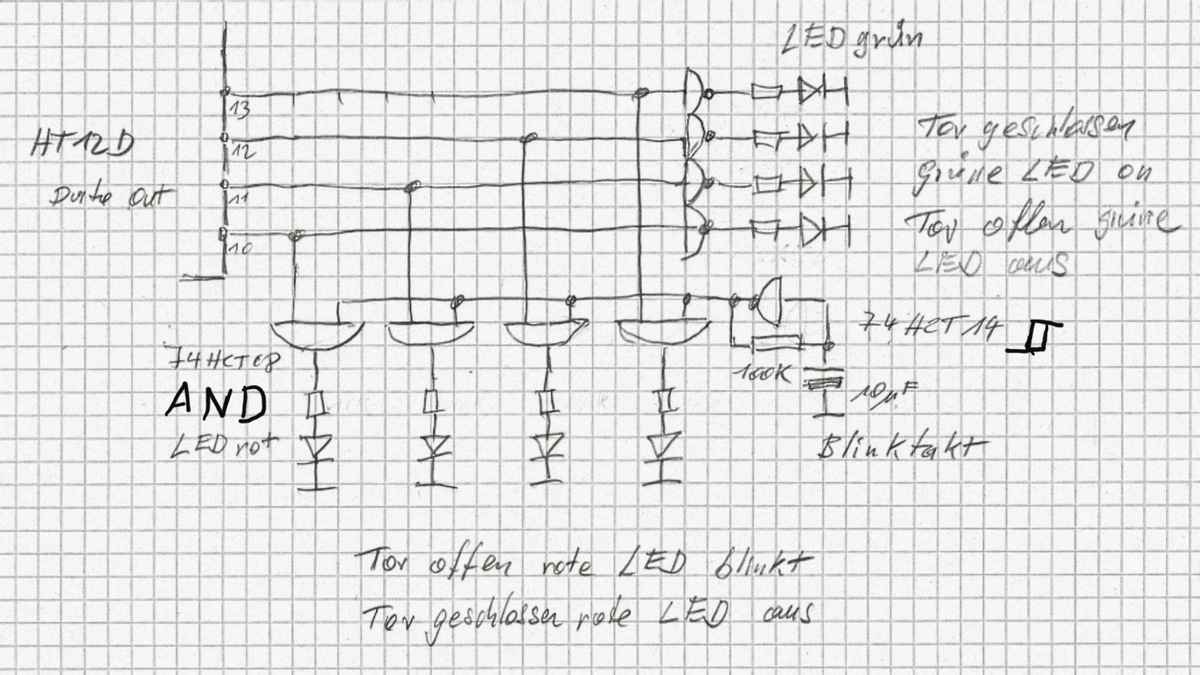 LED grün
13
HT12D
12
Tor geschlossen
grüne LED on
11
Out
Tor offen grüne
10
LED aus
74HCT14
74HCT08
100K
AND
10µF
LED rot
Blinktakt
Tor offen rote LED blinkt
Tor geschlossen rote LED aus